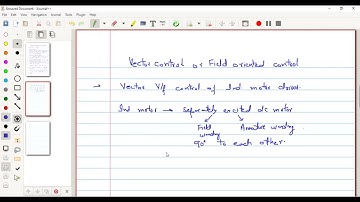 Unsaved Document - Xournal++
Vector control or Field oriented control
→ Vector V/f control of Ind motor drives.
Ind motor → Separately excited dc motor
Field winding Armature winding.
90° to each other.